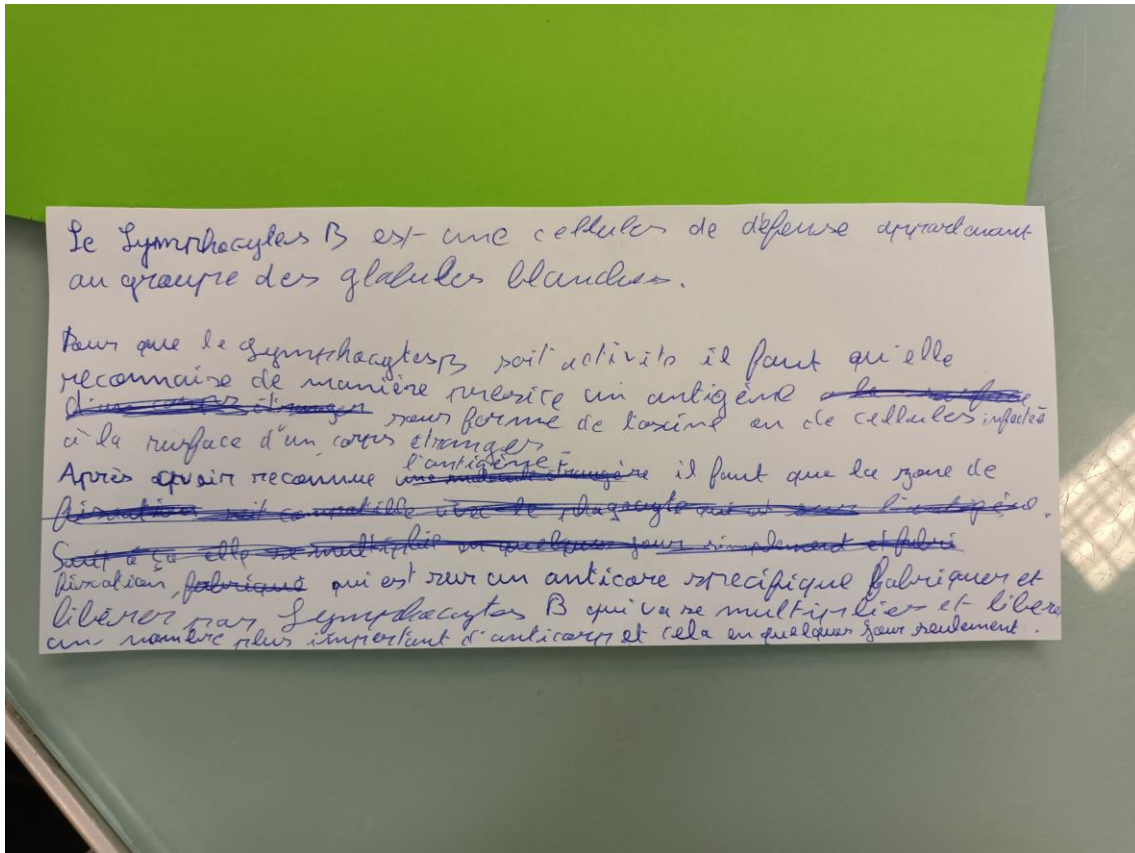 Le Lymphocytes B est une cellules de défense appartenant
au groupe des globules blanches.
Pour que le lymphocytes B soit activits il faut qu'elle
reconnaise de manière précise un antigène
sous forme de toxine ou de cellules infectés
à la surface d'un corps étranger
Après avoir reconnue l'antigène il faut que la zone de
fixation, qui est sur un anticore specifique fabriquer et
libérer par Lymphocytes B qui va se multiplier et libére
un nombre plus important d'anticorp et cela en quelques jour seulement.